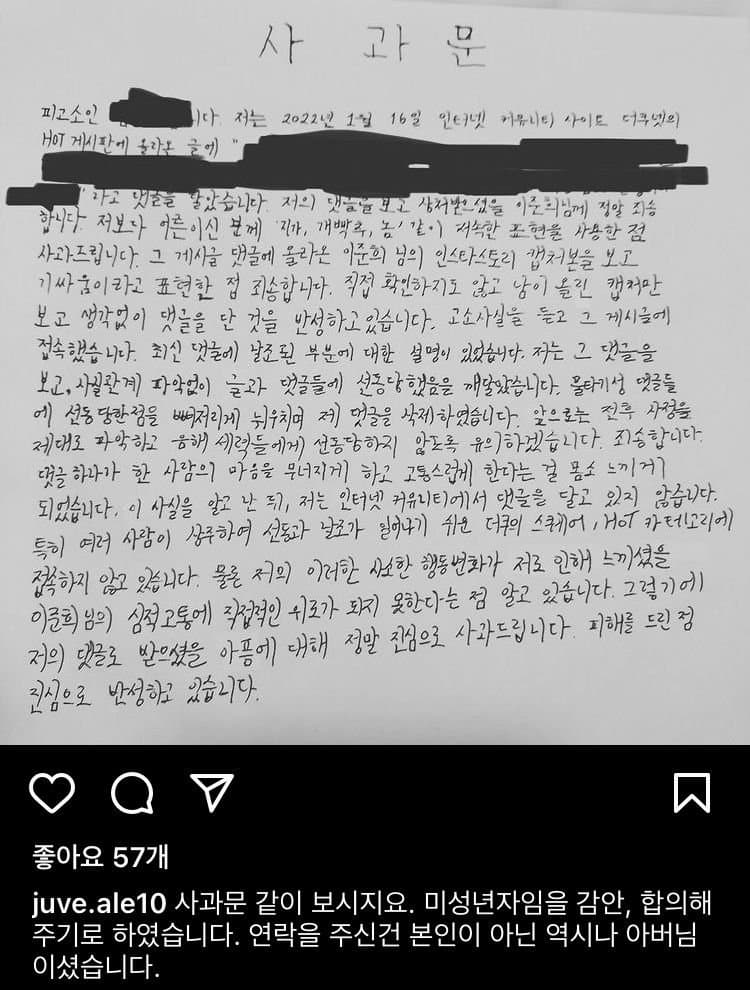 사 과 문
피고소인 니다. 저는 2022년 1월 16일 인터넷 커뮤니티 사이트 더쿠넷의
HOT 게시판에 올라온 글에 "
"라고 댓글을 달았습니다. 저의 댓글을 보고 상처받으셨을 이준희님께 정말 죄송
합니다. 저보다 어른이신 분께 '지가, 개빡촉, 놈' 같이 저속한 표현을 사용한 점
사과드립니다. 그 게시글 댓글에 올라온 이준희 님의 인스타스토리 캡처본을 보고
기싸움이라고 표현한 점 죄송합니다. 직접 확인하지도 않고 남이 올린 캡처만
보고 생각없이 댓글을 단 것을 반성하고 있습니다. 고소사실을 듣고 그 게시글에
접속했습니다. 최신 댓글에 날조된 부분에 대한 설명이 있었습니다. 저는 그 댓글을
보고, 사실관계 파악없이 글과 댓글들에 선동당했음을 깨달았습니다. 물타기성 댓글들
에 선동당한점을 뼈저리게 뉘우치며 제 댓글을 삭제하였습니다. 앞으로는 전후 사정을
제대로 파악하고 음해 세력들에게 선동당하지 않도록 유의하겠습니다. 죄송합니다.
댓글 하나가 한 사람의 마음을 무너지게 하고 고통스럽게 한다는 걸 몸소 느끼게
되었습니다. 이 사실을 알고 난 뒤, 저는 인터넷 커뮤니티에서 댓글을 달고 있지 않습니다.
특히 여러 사람이 상주하여 선동과 날조가 일어나기 쉬운 더쿠의 스퀘어, HOT 카테고리에
접속하지 않고 있습니다. 물론 저의 이러한 사소한 행동변화가 저로 인해 느끼셨을
이준희 님의 심적고통에 직접적인 위로가 되지 못한다는 점 알고 있습니다. 그렇기에
저의 댓글로 받으셨을 아픔에 대해 정말 진심으로 사과드립니다. 피해를 드린 점
진심으로 반성하고 있습니다.
좋아요 57개
juve.ale10 사과문 같이 보시지요. 미성년자임을 감안, 합의해
주기로 하였습니다. 연락을 주신건 본인이 아닌 역시나 아버님
이셨습니다.